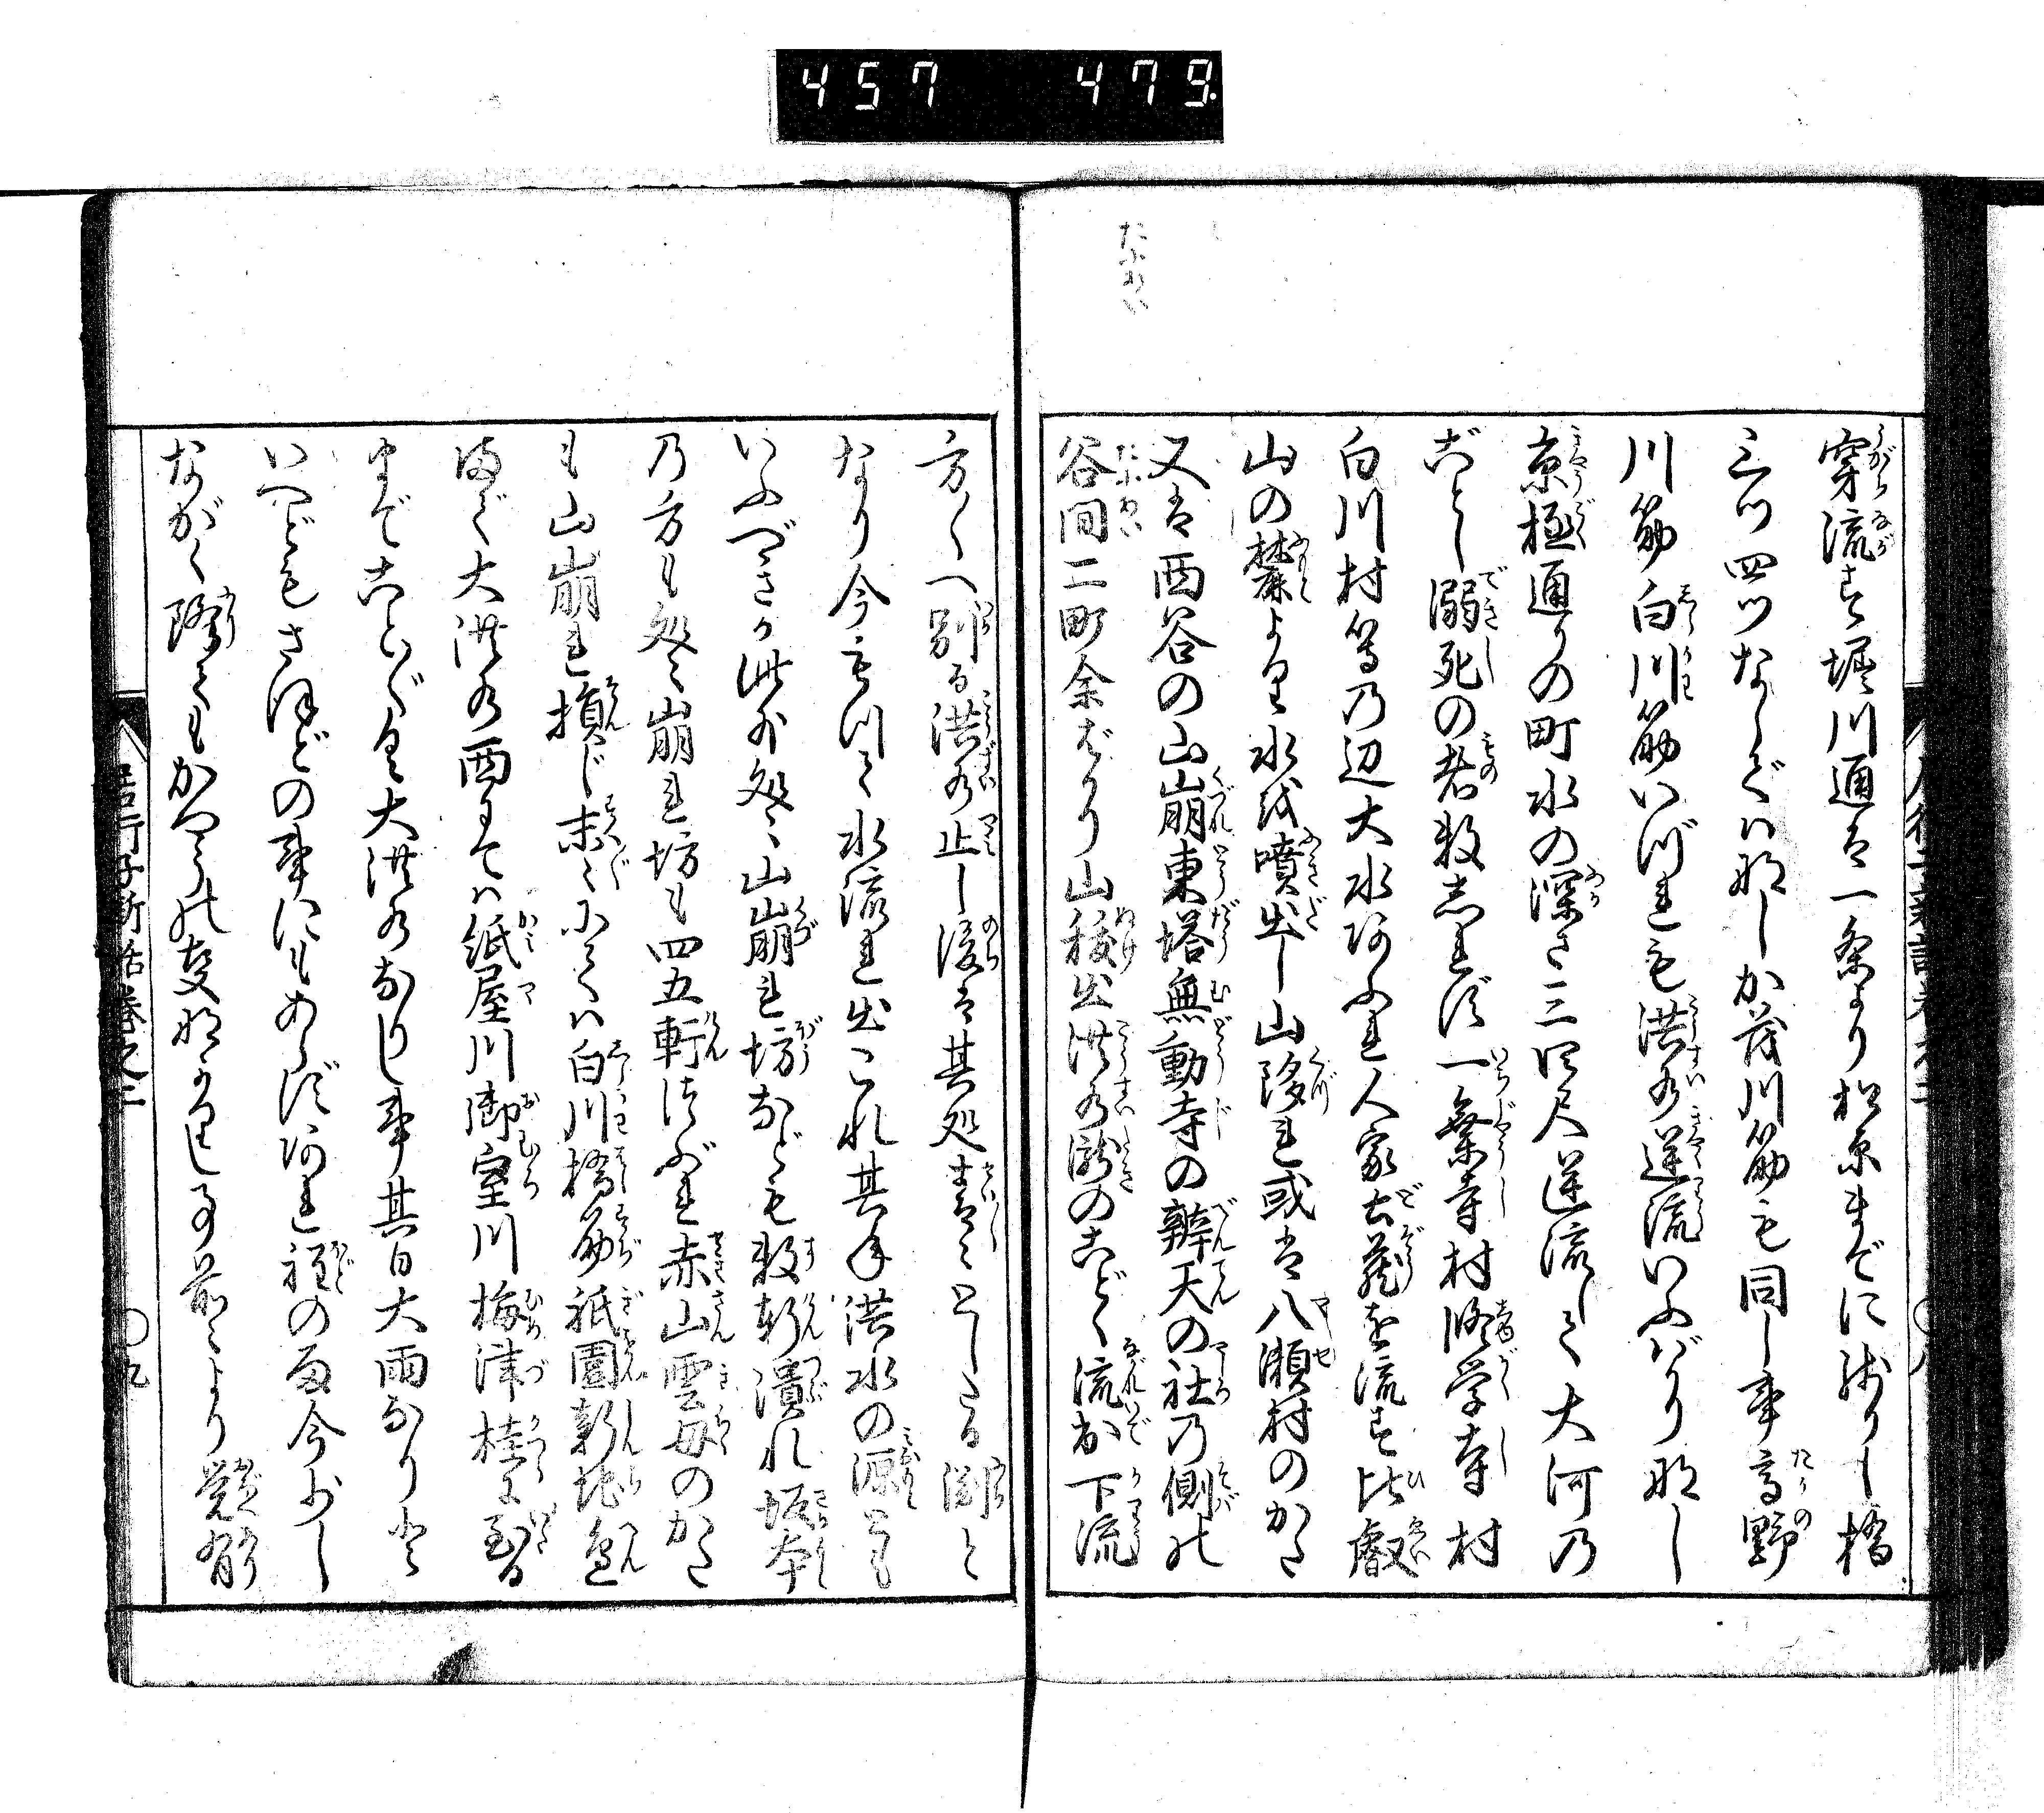 457 479.
たにあい
穿流す堀川通は一条より松原までに残りし橋
三ツ四ツならでハ那しか茂川筋も同し事高野
川筋白川筋いづれも洪水逆流いふバかり那し
京極通りの町水の深さ三四尺逆流して大河の
ごとし溺死の者数しれず一乗寺村修学寺村
白川村等乃辺大水あふれ人家土蔵を流す比叡
山の麓より水を噴出し山崩れ或は八瀬村のかた
又は西谷の山崩東塔無動寺の辨天の社乃側の
谷間二町余ばかり山抜出洪水瀧のごとく流出下流
方々へ別る洪水止し後は其処青々としたる淵と
なり今も川て水流れ出これ其手洪水の源とも
いふべきか此外処々山崩れ坊なども数軒潰れ坂本
乃方も処々崩れ坊も四五軒つぶれ赤山雲母のかた
も山崩れ損じ末々にてハ白川橋筋祇園新地邊
まで大洪水西にてハ紙屋川御室川梅津桂に至る
までことごとく大洪水なりし事其日大雨なりと
いへどもさほどの事にもあらずあれ程の雨今少し
ながく降てもかやうの変なかりし事前々より覚有
居行子新話巻之二 〇九